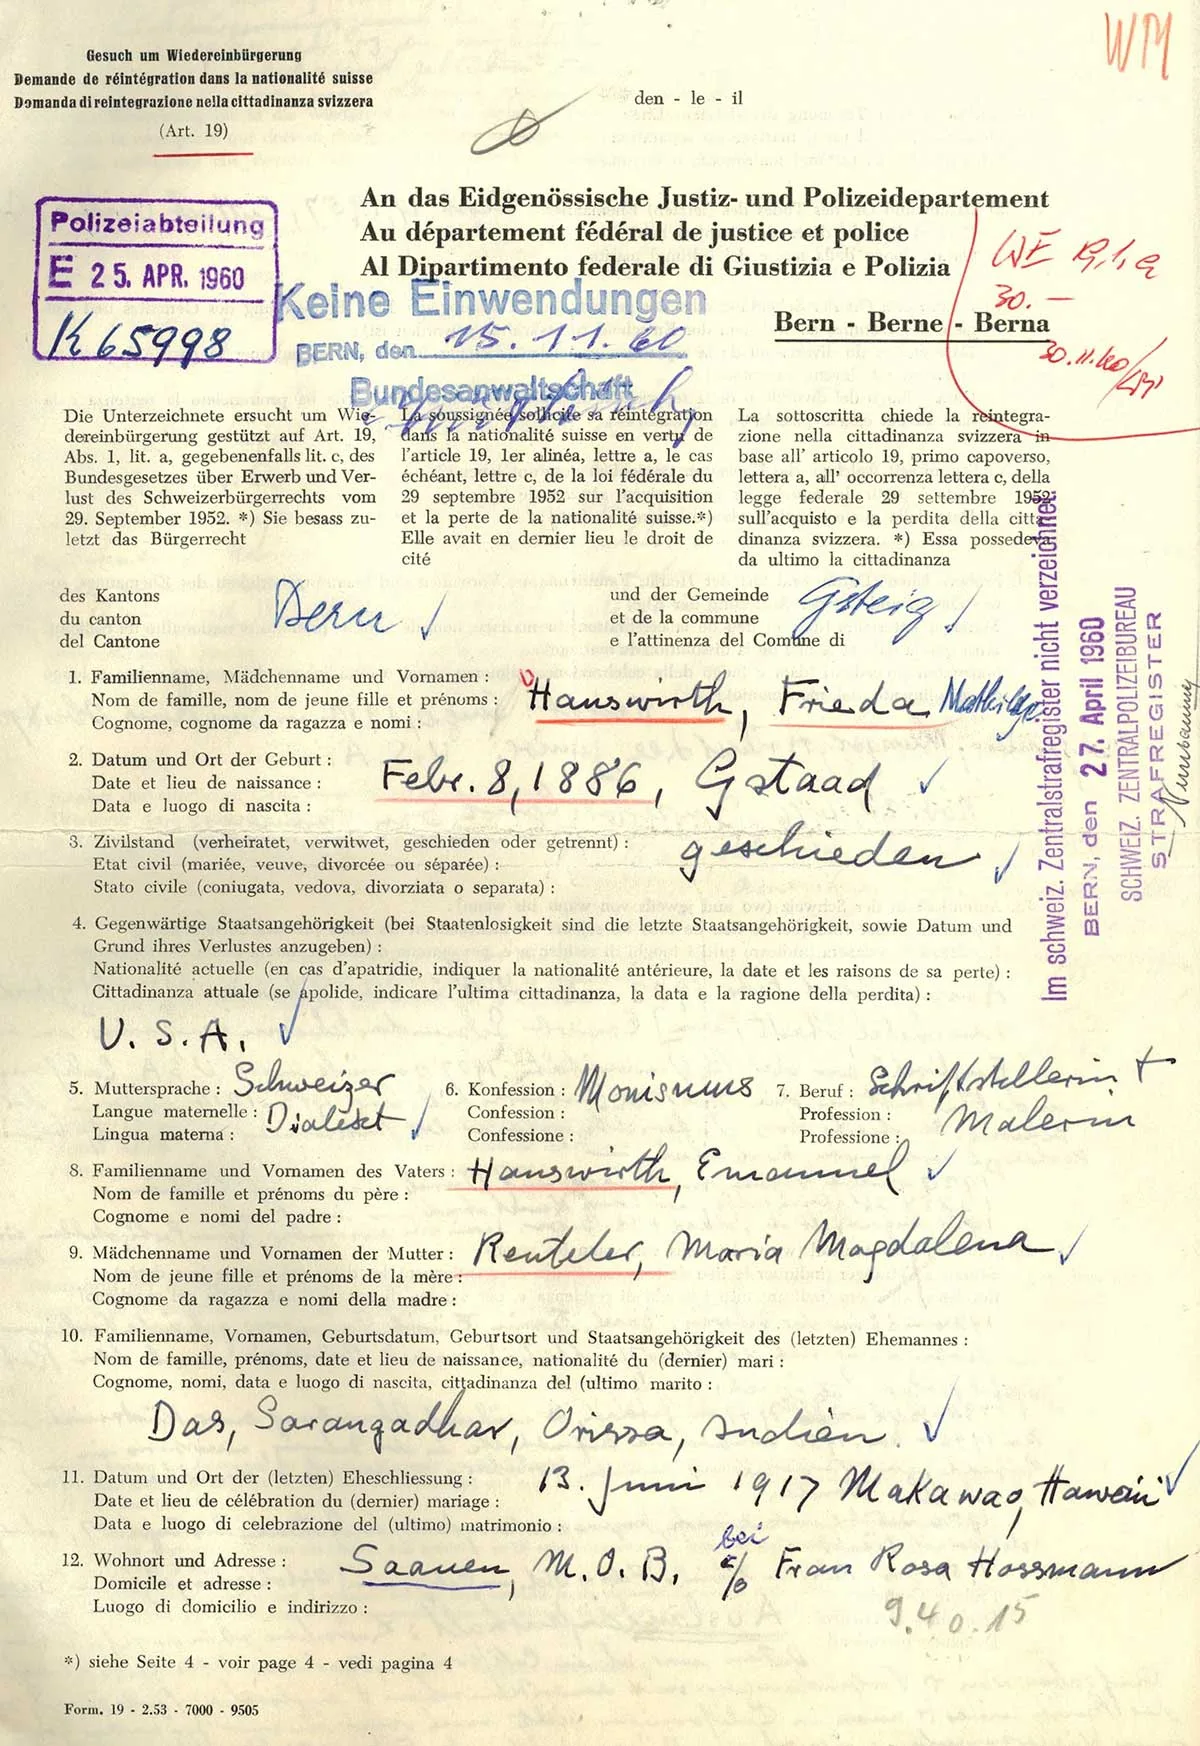 Gesuch um Wiedereinbürgerung
Demande de réintégration dans la nationalité suisse
Domanda di reintegrazione nella cittadinanza svizzera
(Art. 19)
den - le - il
WM
An das Eidgenössische Justiz- und Polizeidepartement
Au département fédéral de justice et police
Al Dipartimento federale di Giustizia e Polizia
Bern - Berne - Berna
Polizeiabteilung
E 25. APR. 1960
K 65998
Keine Einwendungen
BERN, den 15. 11. 60
Bundesanwaltschaft
WE
30. —
30. 11. 60
Die Unterzeichnete ersucht um Wie-
dereinbürgerung gestützt auf Art. 19,
Abs. 1, lit. a, gegebenenfalls lit. c, des
Bundesgesetzes über Erwerb und Ver-
lust des Schweizerbürgerrechts vom
29. September 1952. *) Sie besass zu-
letzt das Bürgerrecht
La soussignée sollicite sa réintégration
dans la nationalité suisse en vertu de
l'article 19, 1er alinéa, lettre a, le cas
échéant, lettre c, de la loi fédérale du
29 septembre 1952 sur l'acquisition
et la perte de la nationalité suisse.*)
Elle avait en dernier lieu le droit de
cité
La sottoscritta chiede la reintegra-
zione nella cittadinanza svizzera in
base all' articolo 19, primo capoverso,
lettera a, all' occorrenza lettera c, della
legge federale 29 settembre 1952
sull'acquisto e la perdita della citta-
dinanza svizzera. *) Essa possedeva
da ultimo la cittadinanza
des Kantons
du canton
del Cantone
Bern
und der Gemeinde
et de la commune
e l'attinenza del Comune di
Gsteig
Im schweiz. Zentralstrafregister nicht verzeichnet
BERN, den 27. April 1960
SCHWEIZ. ZENTRALPOLIZEIBUREAU
STRAFREGISTER
1. Familienname, Mädchenname und Vornamen :
Nom de famille, nom de jeune fille et prénoms :
Cognome, cognome da ragazza e nomi :
Hauswirth, Frieda Mathilde
2. Datum und Ort der Geburt :
Date et lieu de naissance :
Data e luogo di nascita :
Febr. 8, 1886, Gstaad
3. Zivilstand (verheiratet, verwitwet, geschieden oder getrennt) :
Etat civil (mariée, veuve, divorcée ou séparée) :
Stato civile (coniugata, vedova, divorziata o separata) :
geschieden
4. Gegenwärtige Staatsangehörigkeit (bei Staatenlosigkeit sind die letzte Staatsangehörigkeit, sowie Datum und
Grund ihres Verlustes anzugeben) :
Nationalité actuelle (en cas d'apatridie, indiquer la nationalité antérieure, la date et les raisons de sa perte) :
Cittadinanza attuale (se apolide, indicare l'ultima cittadinanza, la data e la ragione della perdita) :
U. S. A.
5. Muttersprache : Schweizer
Langue maternelle : Dialekt
Lingua materna :
6. Konfession : Monismus
Confession :
Confessione :
7. Beruf : Schriftstellerin +
Profession : Malerin
Professione :
8. Familienname und Vornamen des Vaters : Hauswirth, Emanuel
Nom de famille et prénoms du père :
Cognome e nomi del padre :
9. Mädchenname und Vornamen der Mutter : Reuteler, Maria Magdalena
Nom de jeune fille et prénoms de la mère :
Cognome da ragazza e nomi della madre :
10. Familienname, Vornamen, Geburtsdatum, Geburtsort und Staatsangehörigkeit des (letzten) Ehemannes :
Nom de famille, prénoms, date et lieu de naissance, nationalité du (dernier) mari :
Cognome, nomi, data e luogo di nascita, cittadinanza del (ultimo marito :
Das, Sarangadhar, Orissa, Indien.
11. Datum und Ort der (letzten) Eheschliessung : 13. Juni 1917 Makawao, Hawaii
Date et lieu de célébration du (dernier) mariage :
Data e luogo di celebrazione del (ultimo) matrimonio :
12. Wohnort und Adresse : Saanen, M. O. B. c/o bei Frau Rosa Hossmann
Domicile et adresse :
Luogo di domicilio e indirizzo :
9.40.15
*) siehe Seite 4 - voir page 4 - vedi pagina 4
Form. 19 - 2.53 - 7000 - 9505